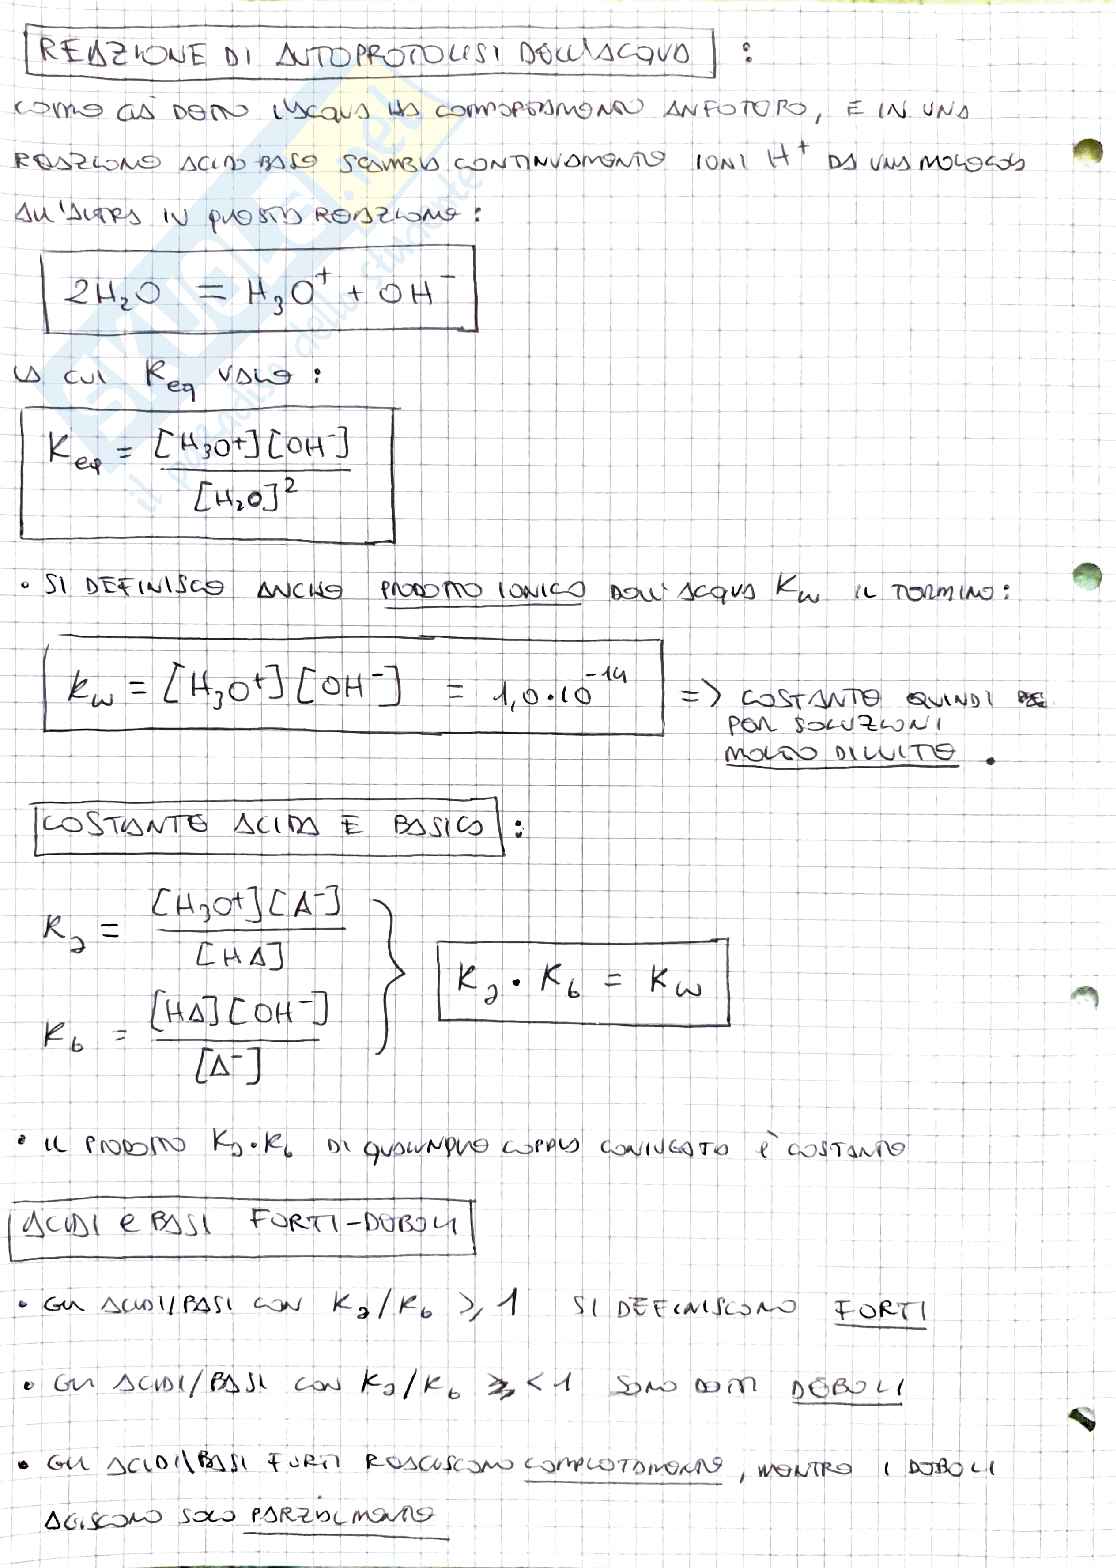 REAZIONE DI AUTOPROTOLISI DELL'ACQUA :
COME GIÀ DETTO L'ACQUA HA COMPORTAMENTO ANFOTERO, E IN UNA
REAZIONE ACIDO BASE SCAMBIA CONTINUAMENTE IONI H⁺ DA UNA MOLECOLA
ALL'ALTRA IN QUESTA REAZIONE :
2H₂O = H₃O⁺ + OH⁻
LA CUI Keq VALE :
Keq = [H₃O⁺][OH⁻] / [H₂O]²
• SI DEFINISCE ANCHE PRODOTTO IONICO DELL'ACQUA Kw IL TERMINE :
Kw = [H₃O⁺][OH⁻] = 1,0·10⁻¹⁴ => COSTANTE QUINDI
PER SOLUZIONI
MOLTO DILUITE .
COSTANTE ACIDA E BASICA :
Ka = [H₃O⁺][A⁻] / [HA]
Kb = [HA][OH⁻] / [A⁻]
Ka · Kb = Kw
• IL PRODOTTO Ka·Kb DI QUALUNQUE COPPIA CONIUGATA È COSTANTE
ACIDI e BASI FORTI-DEBOLI
• GLI ACIDI/BASI CON Ka/Kb ⩾ 1 SI DEFINISCONO FORTI
• GLI ACIDI/BASI CON Ka/Kb < 1 SONO DETTI DEBOLI
• GLI ACIDI/BASI FORTI REAGISCONO COMPLETAMENTE, MENTRE I DEBOLI
AGISCONO SOLO PARZIALMENTE
SKUOLA.net
il paradiso dello studente